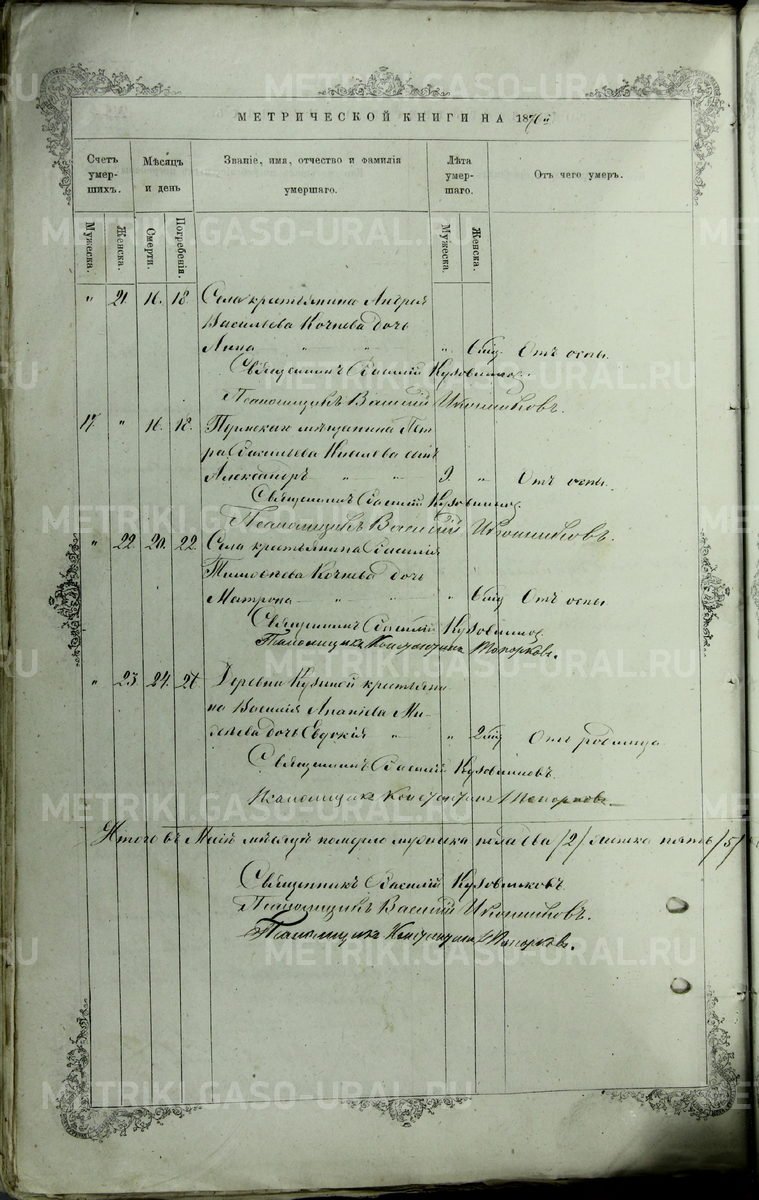 МЕТРИЧЕСКОЙ КНИГИ НА 1876
Счетъ умер- шихъ.
Мѣсяцъ и день
Званіе, имя, отчество и фамилія умершаго.
Лѣта умер- шаго.
Отъ чего умеръ.
Мужеска. Женска. Смерти. Погребенія. Мужеска. Женска.
" 21 16. 18. Села крестьянина Андрея
Васильева Кочнева дочь
Анна " " " 6 Отъ оспы.
Священникъ Василій Кузовниковъ.
Псаломщикъ Василій Иконниковъ.
17. " 16. 18. Пермскаго мѣщанина Пет-
ра Васильева Киселева сынъ
Александръ " " " Отъ оспы.
Священникъ Василій Кузовников.
Псаломщикъ Василій Иконниковъ.
" 22. 20. 22. Села крестьянина Василія
Кочнева дочь
Матрона " " " Отъ оспы
Священникъ Василій Кузовников.
Псаломщикъ Константинъ Топорковъ.
" 23. 24. 26. Деревни крестьяни-
на Василія Ми-
дочь Евдокія " " 2 Отъ родимца
Священникъ Василій Кузовниковъ.
Псаломщикъ Константинъ Топорковъ
Итого въ Маѣ мѣсяцѣ померло мужеска пола два /2/ женска пять /5/
Священникъ Василій Кузовниковъ.
Псаломщикъ Василій Иконниковъ.
Псаломщикъ Константинъ Топорковъ.
METRIKI.GASO-URAL.RU